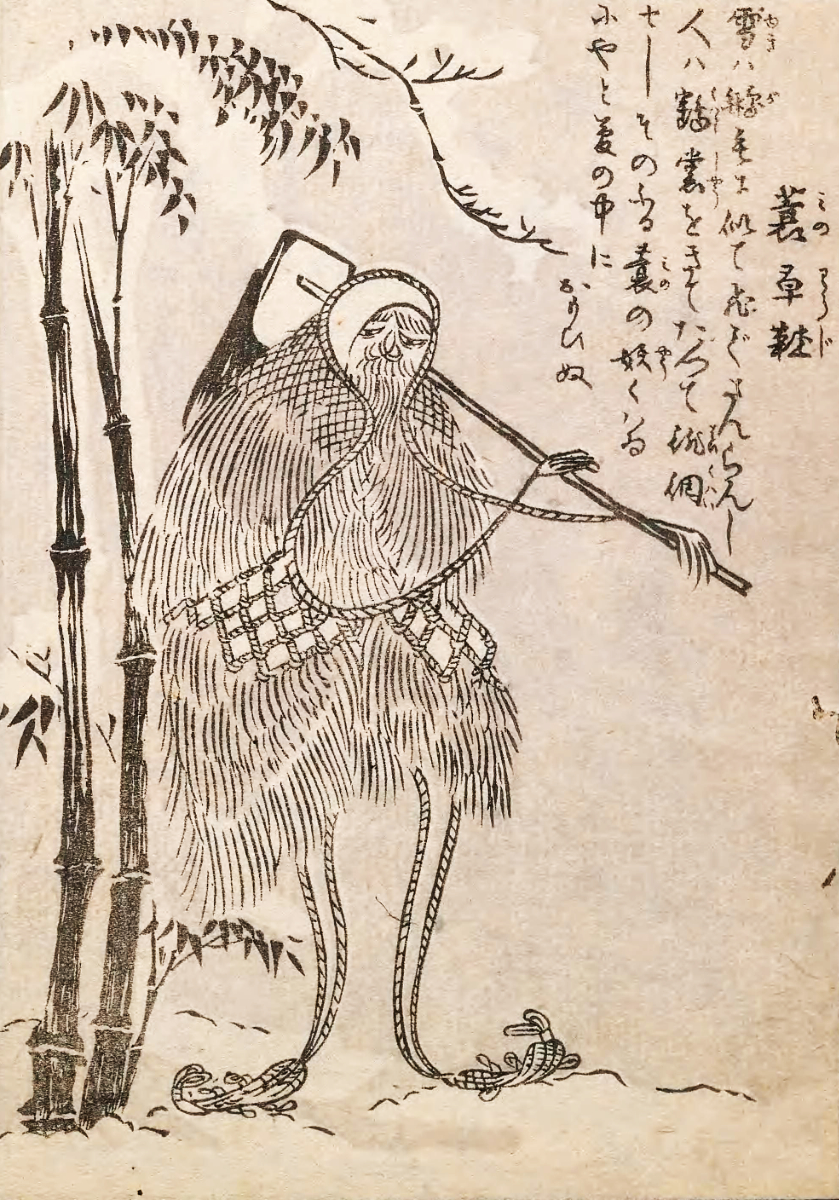 蓑草鞋
雪ハ鵝毛に似て飛でさんらんし
人ハ鶴氅をきてたつて徘徊
せしそのふる蓑の妖くハゐ
にやと夢の中に
おもひぬ